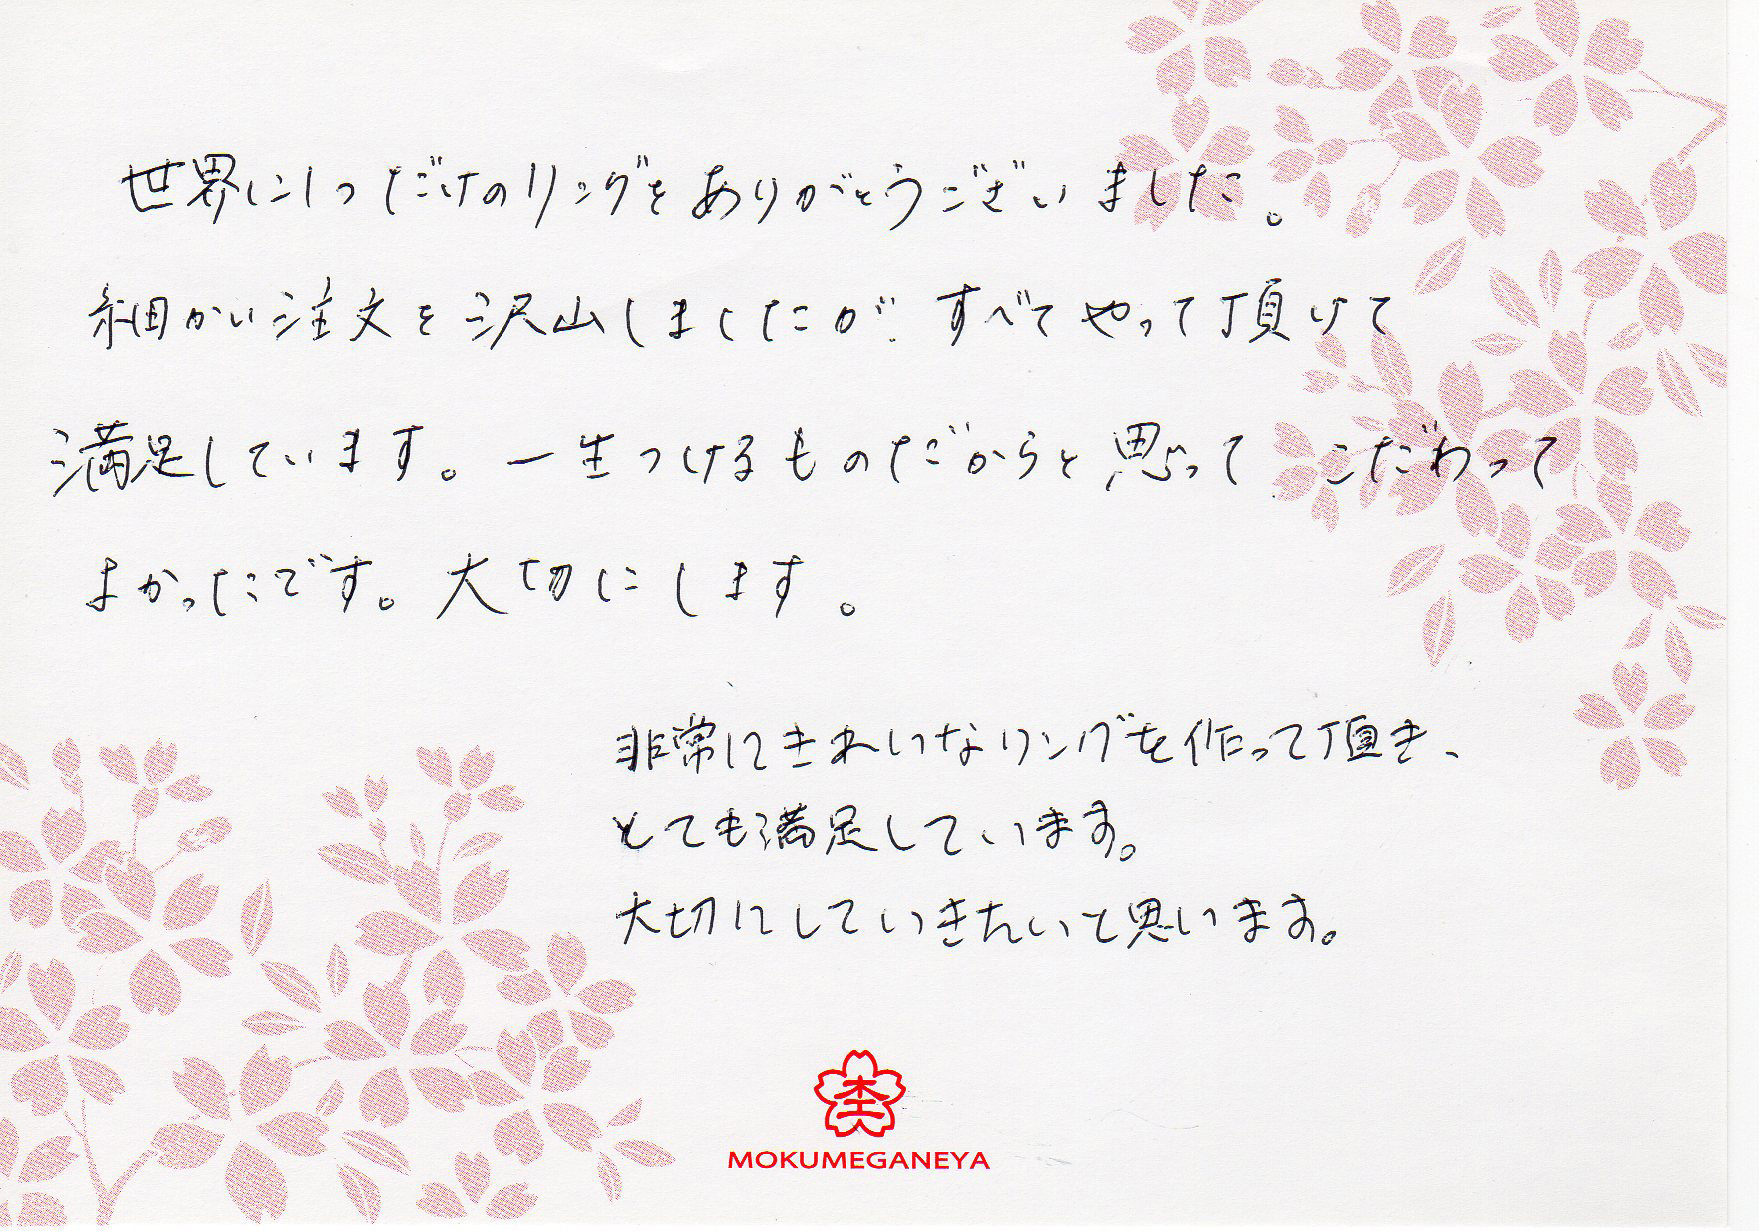 世界に1つだけのリングをありがとうございました。
細かい注文を沢山しましたが、すべてやって頂けて
満足しています。一生つけるものだからと思って、こだわって
よかったです。大切にします。
非常にきれいなリングを作って頂き、
とても満足しています。
大切にしていきたいと思います。
杢
MOKUMEGANEYA